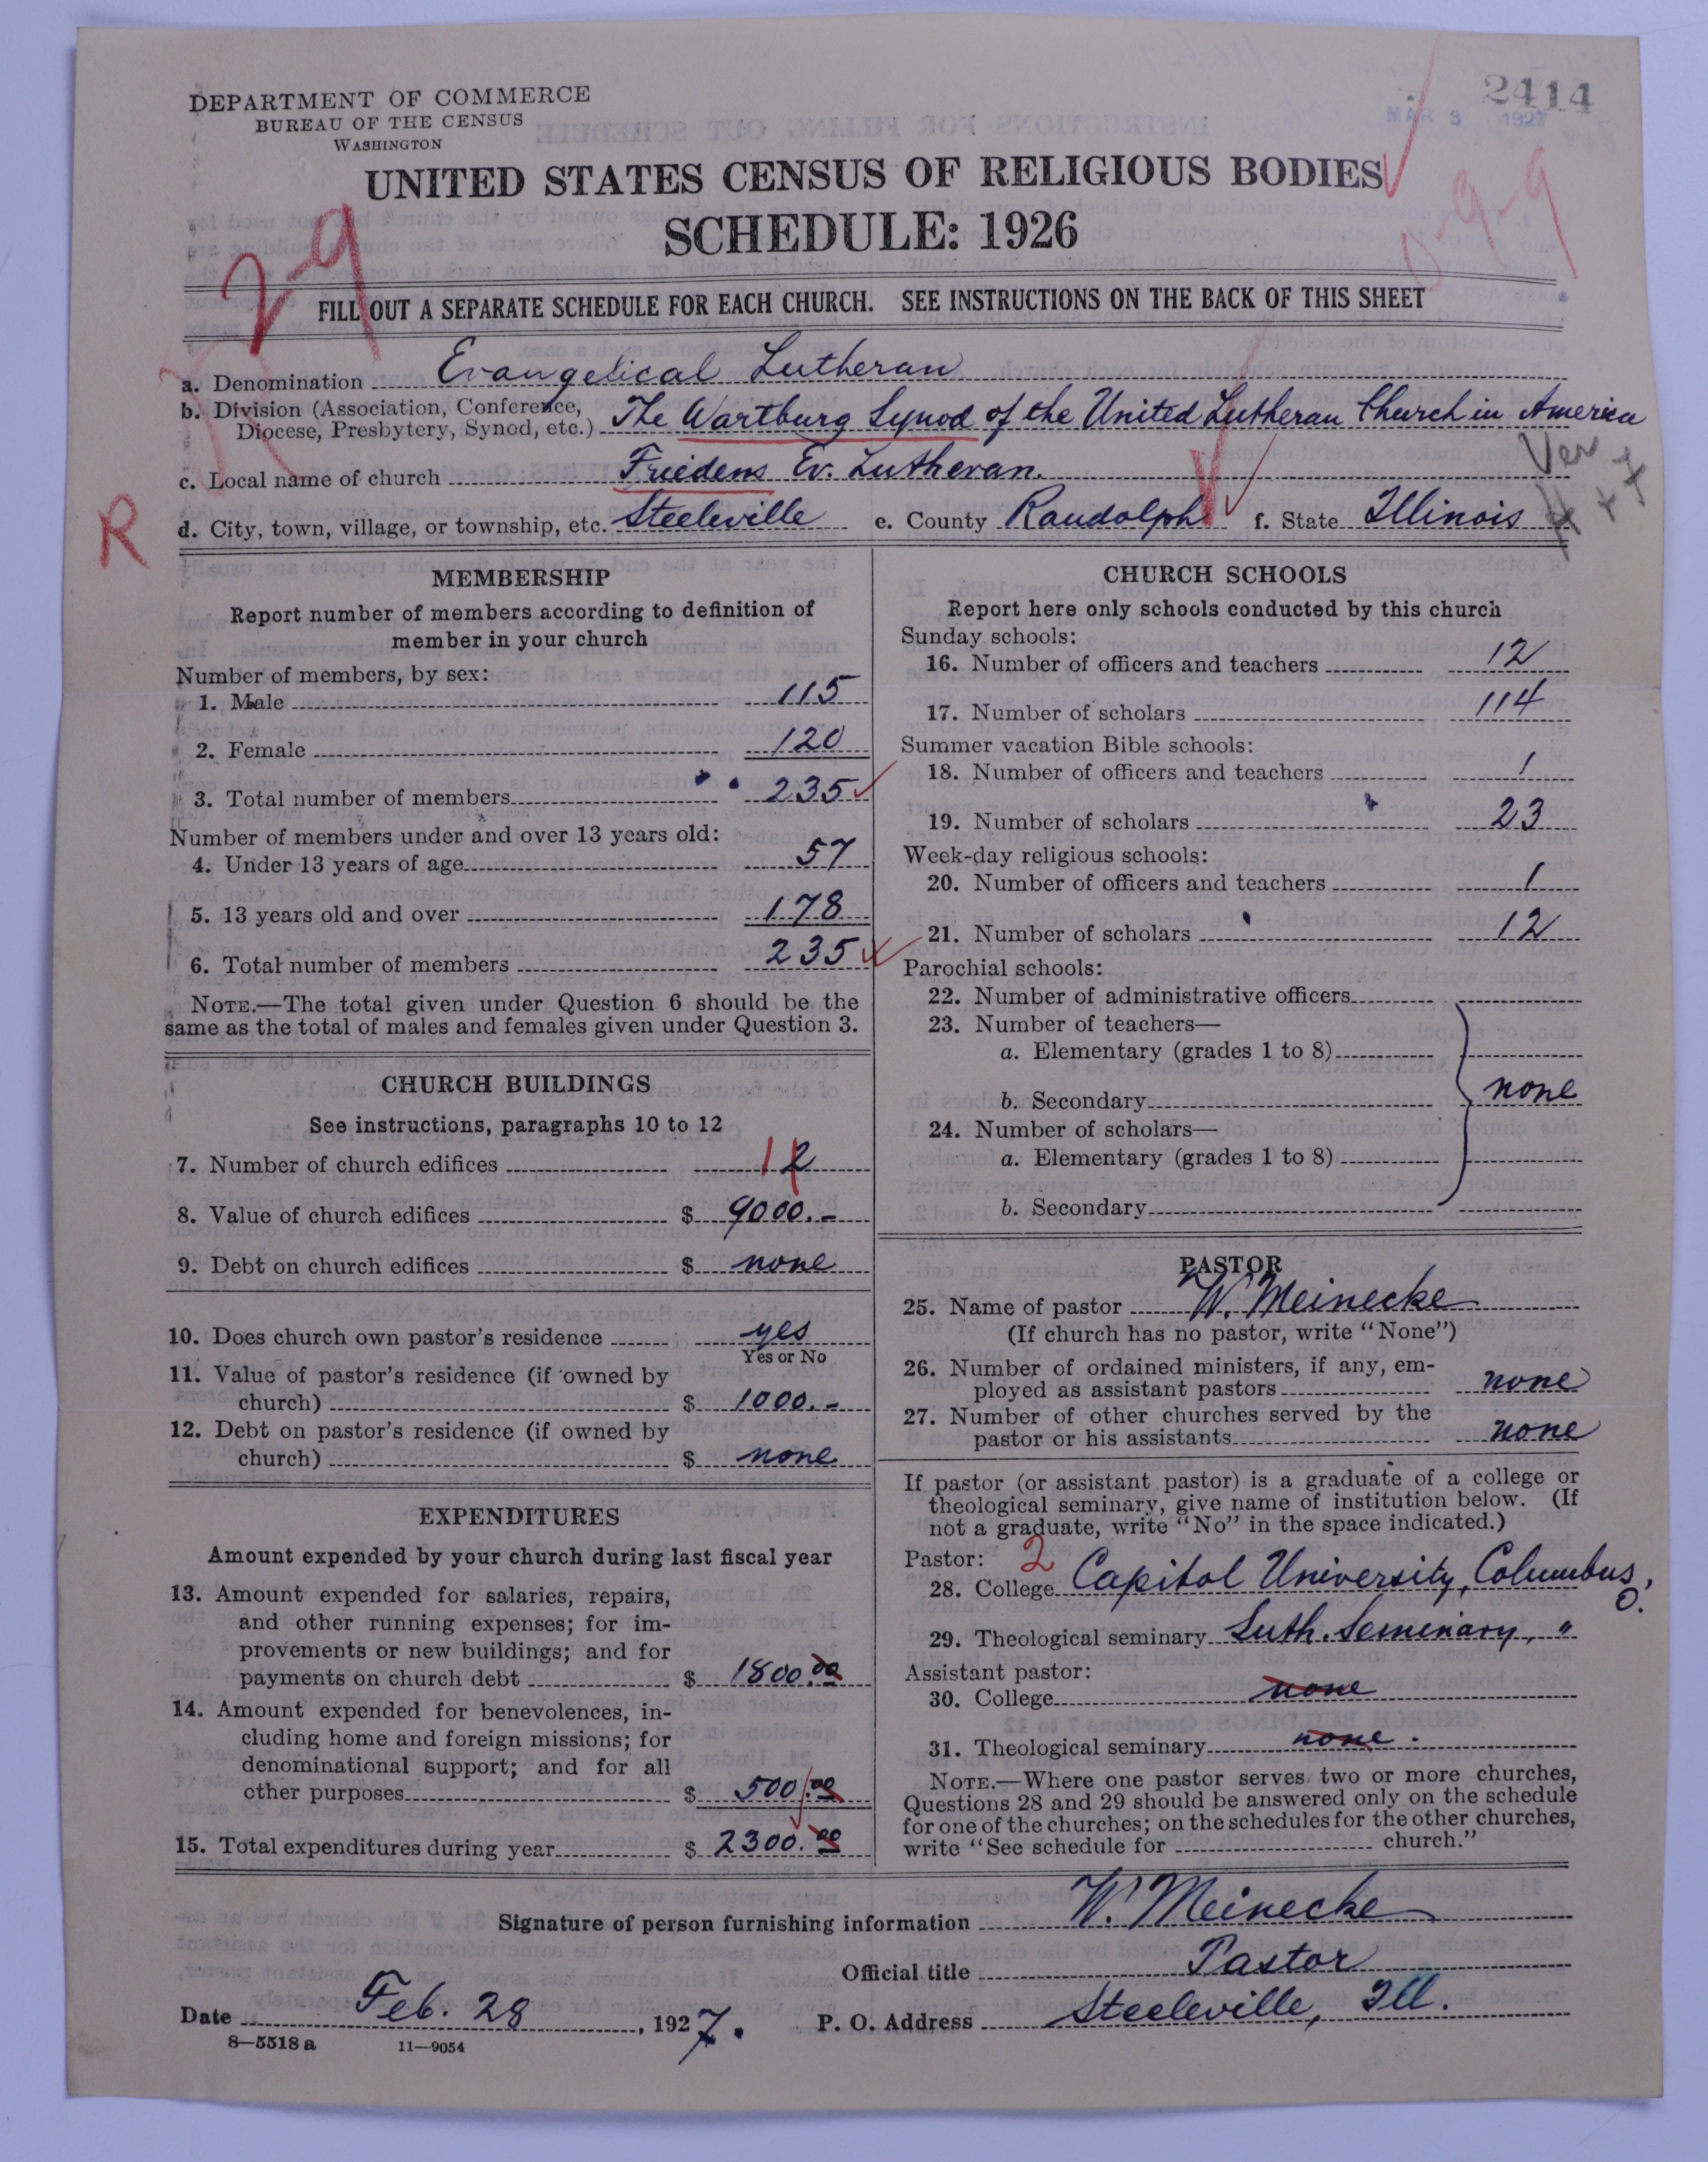 2414
MAR 3 1927
DEPARTMENT OF COMMERCE
BUREAU OF THE CENSUS
WASHINGTON
UNITED STATES CENSUS OF RELIGIOUS BODIES
SCHEDULE: 1926
29
FILL OUT A SEPARATE SCHEDULE FOR EACH CHURCH. SEE INSTRUCTIONS ON THE BACK OF THIS SHEET
a. Denomination Evangelical Lutheran
b. Division (Association, Conference, Diocese, Presbytery, Synod, etc.) The Wartburg Synod of the United Lutheran Church in America
c. Local name of church Friedens Ev. Lutheran.
Ver
R
d. City, town, village, or township, etc. Steeleville e. County Randolph f. State Illinois
MEMBERSHIP
Report number of members according to definition of
member in your church
Number of members, by sex:
1. Male 115
2. Female 120
3. Total number of members 235
Number of members under and over 13 years old:
4. Under 13 years of age 57
5. 13 years old and over 178
6. Total number of members 235
NOTE.—The total given under Question 6 should be the
same as the total of males and females given under Question 3.
CHURCH BUILDINGS
See instructions, paragraphs 10 to 12
7. Number of church edifices 1 2
8. Value of church edifices $ 9000.-
9. Debt on church edifices $ none
10. Does church own pastor's residence yes
Yes or No
11. Value of pastor's residence (if owned by
church) $ 1000.-
12. Debt on pastor's residence (if owned by
church) $ none
EXPENDITURES
Amount expended by your church during last fiscal year
13. Amount expended for salaries, repairs,
and other running expenses; for im-
provements or new buildings; and for
payments on church debt $ 1800.00
14. Amount expended for benevolences, in-
cluding home and foreign missions; for
denominational support; and for all
other purposes $ 500.00
15. Total expenditures during year $ 2300.00
CHURCH SCHOOLS
Report here only schools conducted by this church
Sunday schools:
16. Number of officers and teachers 12
17. Number of scholars 114
Summer vacation Bible schools:
18. Number of officers and teachers 1
19. Number of scholars 23
Week-day religious schools:
20. Number of officers and teachers 1
21. Number of scholars 12
Parochial schools:
22. Number of administrative officers
23. Number of teachers—
a. Elementary (grades 1 to 8)
b. Secondary none
24. Number of scholars—
a. Elementary (grades 1 to 8)
b. Secondary
PASTOR
25. Name of pastor W. Meinecke
(If church has no pastor, write "None")
26. Number of ordained ministers, if any, em-
ployed as assistant pastors none
27. Number of other churches served by the
pastor or his assistants none
If pastor (or assistant pastor) is a graduate of a college or
theological seminary, give name of institution below. (If
not a graduate, write "No" in the space indicated.)
Pastor: 2
28. College Capitol University, Columbus, O.
29. Theological seminary Luth. Seminary, "
Assistant pastor:
30. College none
31. Theological seminary none.
NOTE.—Where one pastor serves two or more churches,
Questions 28 and 29 should be answered only on the schedule
for one of the churches; on the schedules for the other churches,
write "See schedule for church."
Signature of person furnishing information W. Meinecke
Official title Pastor
Date Feb. 28, 1927. P. O. Address Steeleville, Ill.
8—5518 a 11—9054